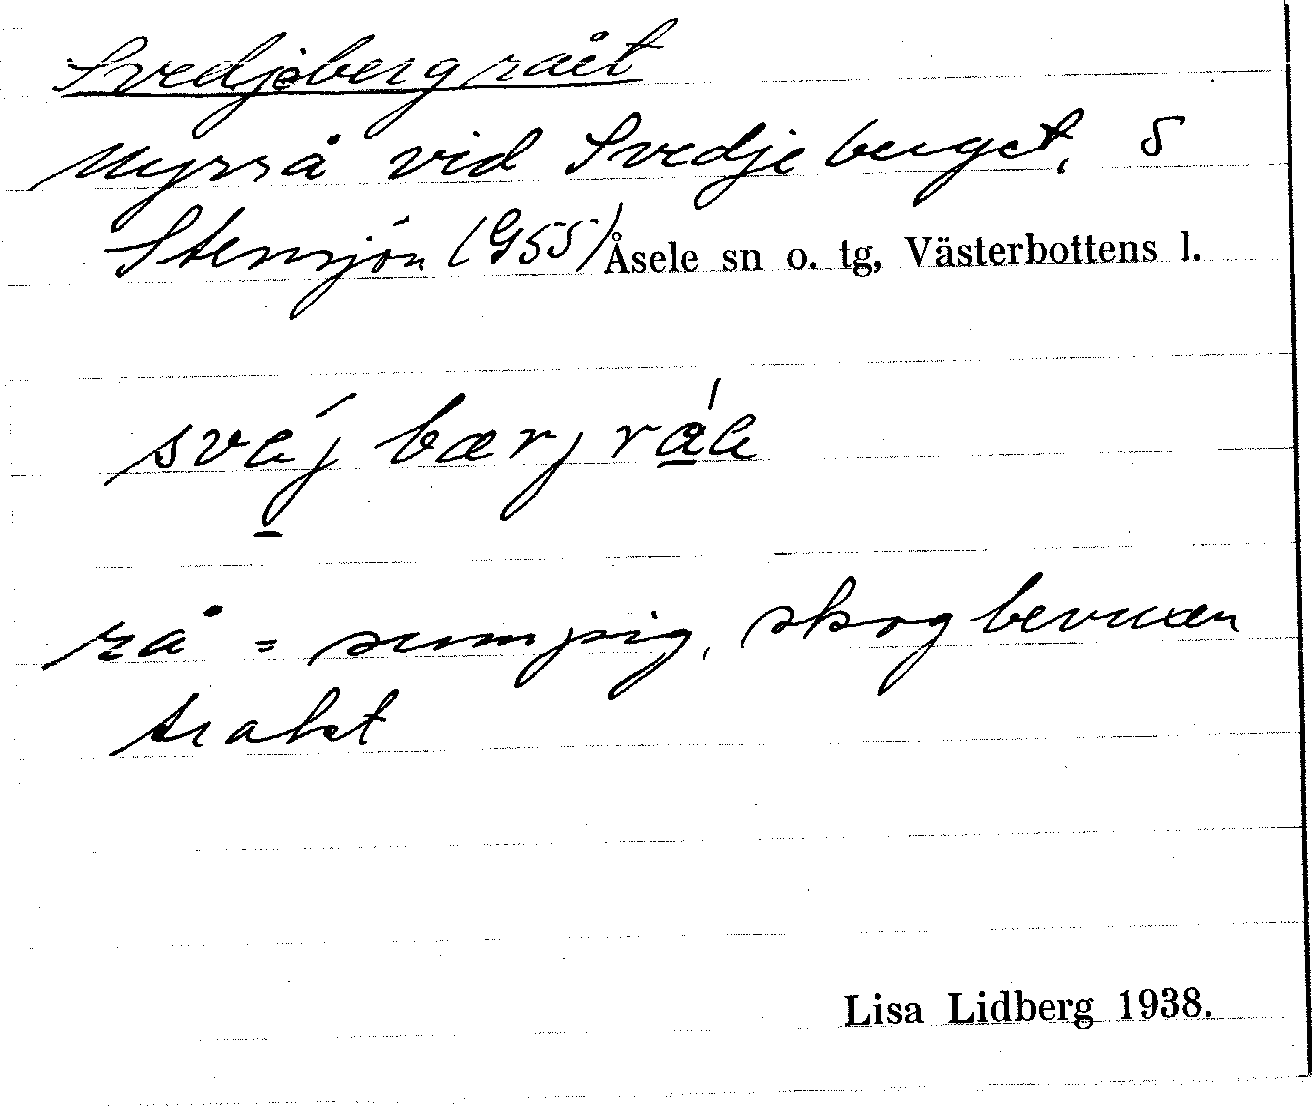 Svedjebergrået
Myrrå vid Svedjeberget, S
Stensjön (G55) Åsele sn o. tg, Västerbottens l.
svéj bærj råe
rå = sumpig, skogbevuxen
trakt
Lisa Lidberg 1938.